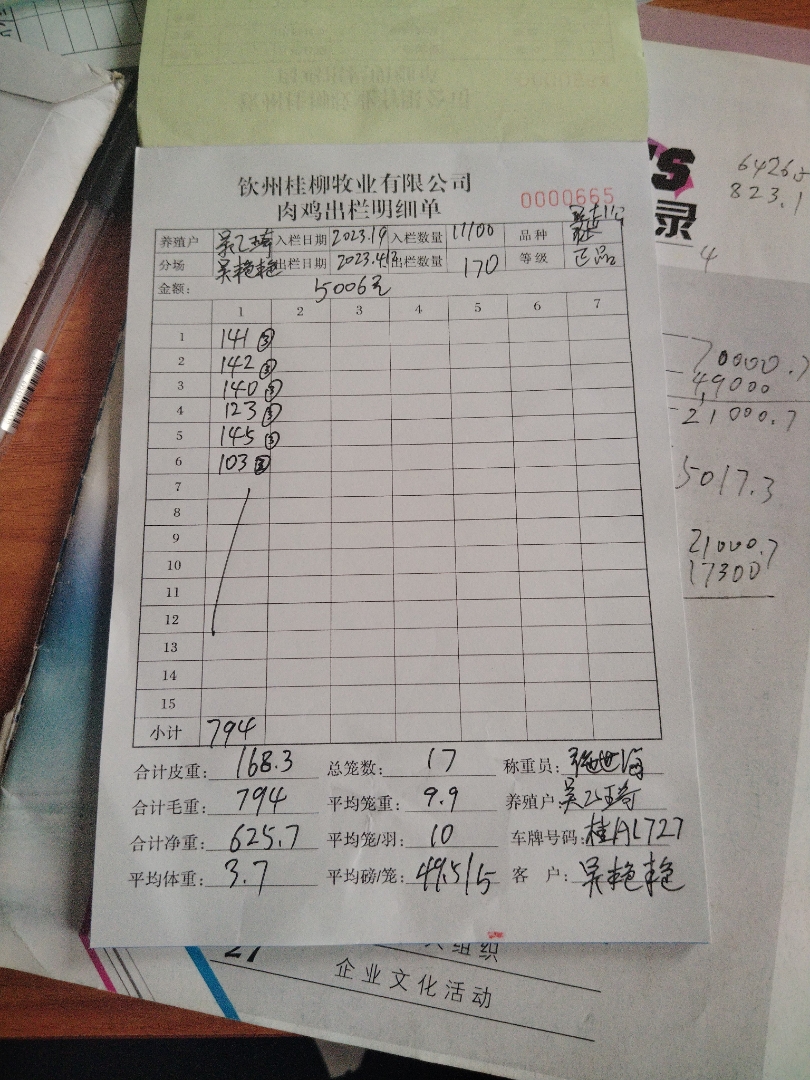 钦州桂柳牧业有限公司
肉鸡出栏明细单
0000665
养殖户 吴乙琦 入栏日期 2023.19 入栏数量 11100 品种
分场 吴艳艳 出栏日期 2023.4 出栏数量 170 等级 正品
金额: 5006元
1 2 3 4 5 6 7
1 141 ③
2 142 ③
3 140 ③
4 123 ③
5 145 ③
6 103 ②
7
8
9
10
11
12
13
14
15
小计 794
合计皮重: 168.3 总笼数: 17 称重员:
合计毛重: 794 平均笼重: 9.9 养殖户: 吴乙琦
合计净重: 625.7 平均笼/羽: 10 车牌号码: 桂AL727
平均体重: 3.7 平均磅/笼: 49.5/5 客 户: 吴艳艳
录
823.1
4
70000.7
49000
21000.7
5017.3
21000.7
17300
27 人组织
企业文化活动